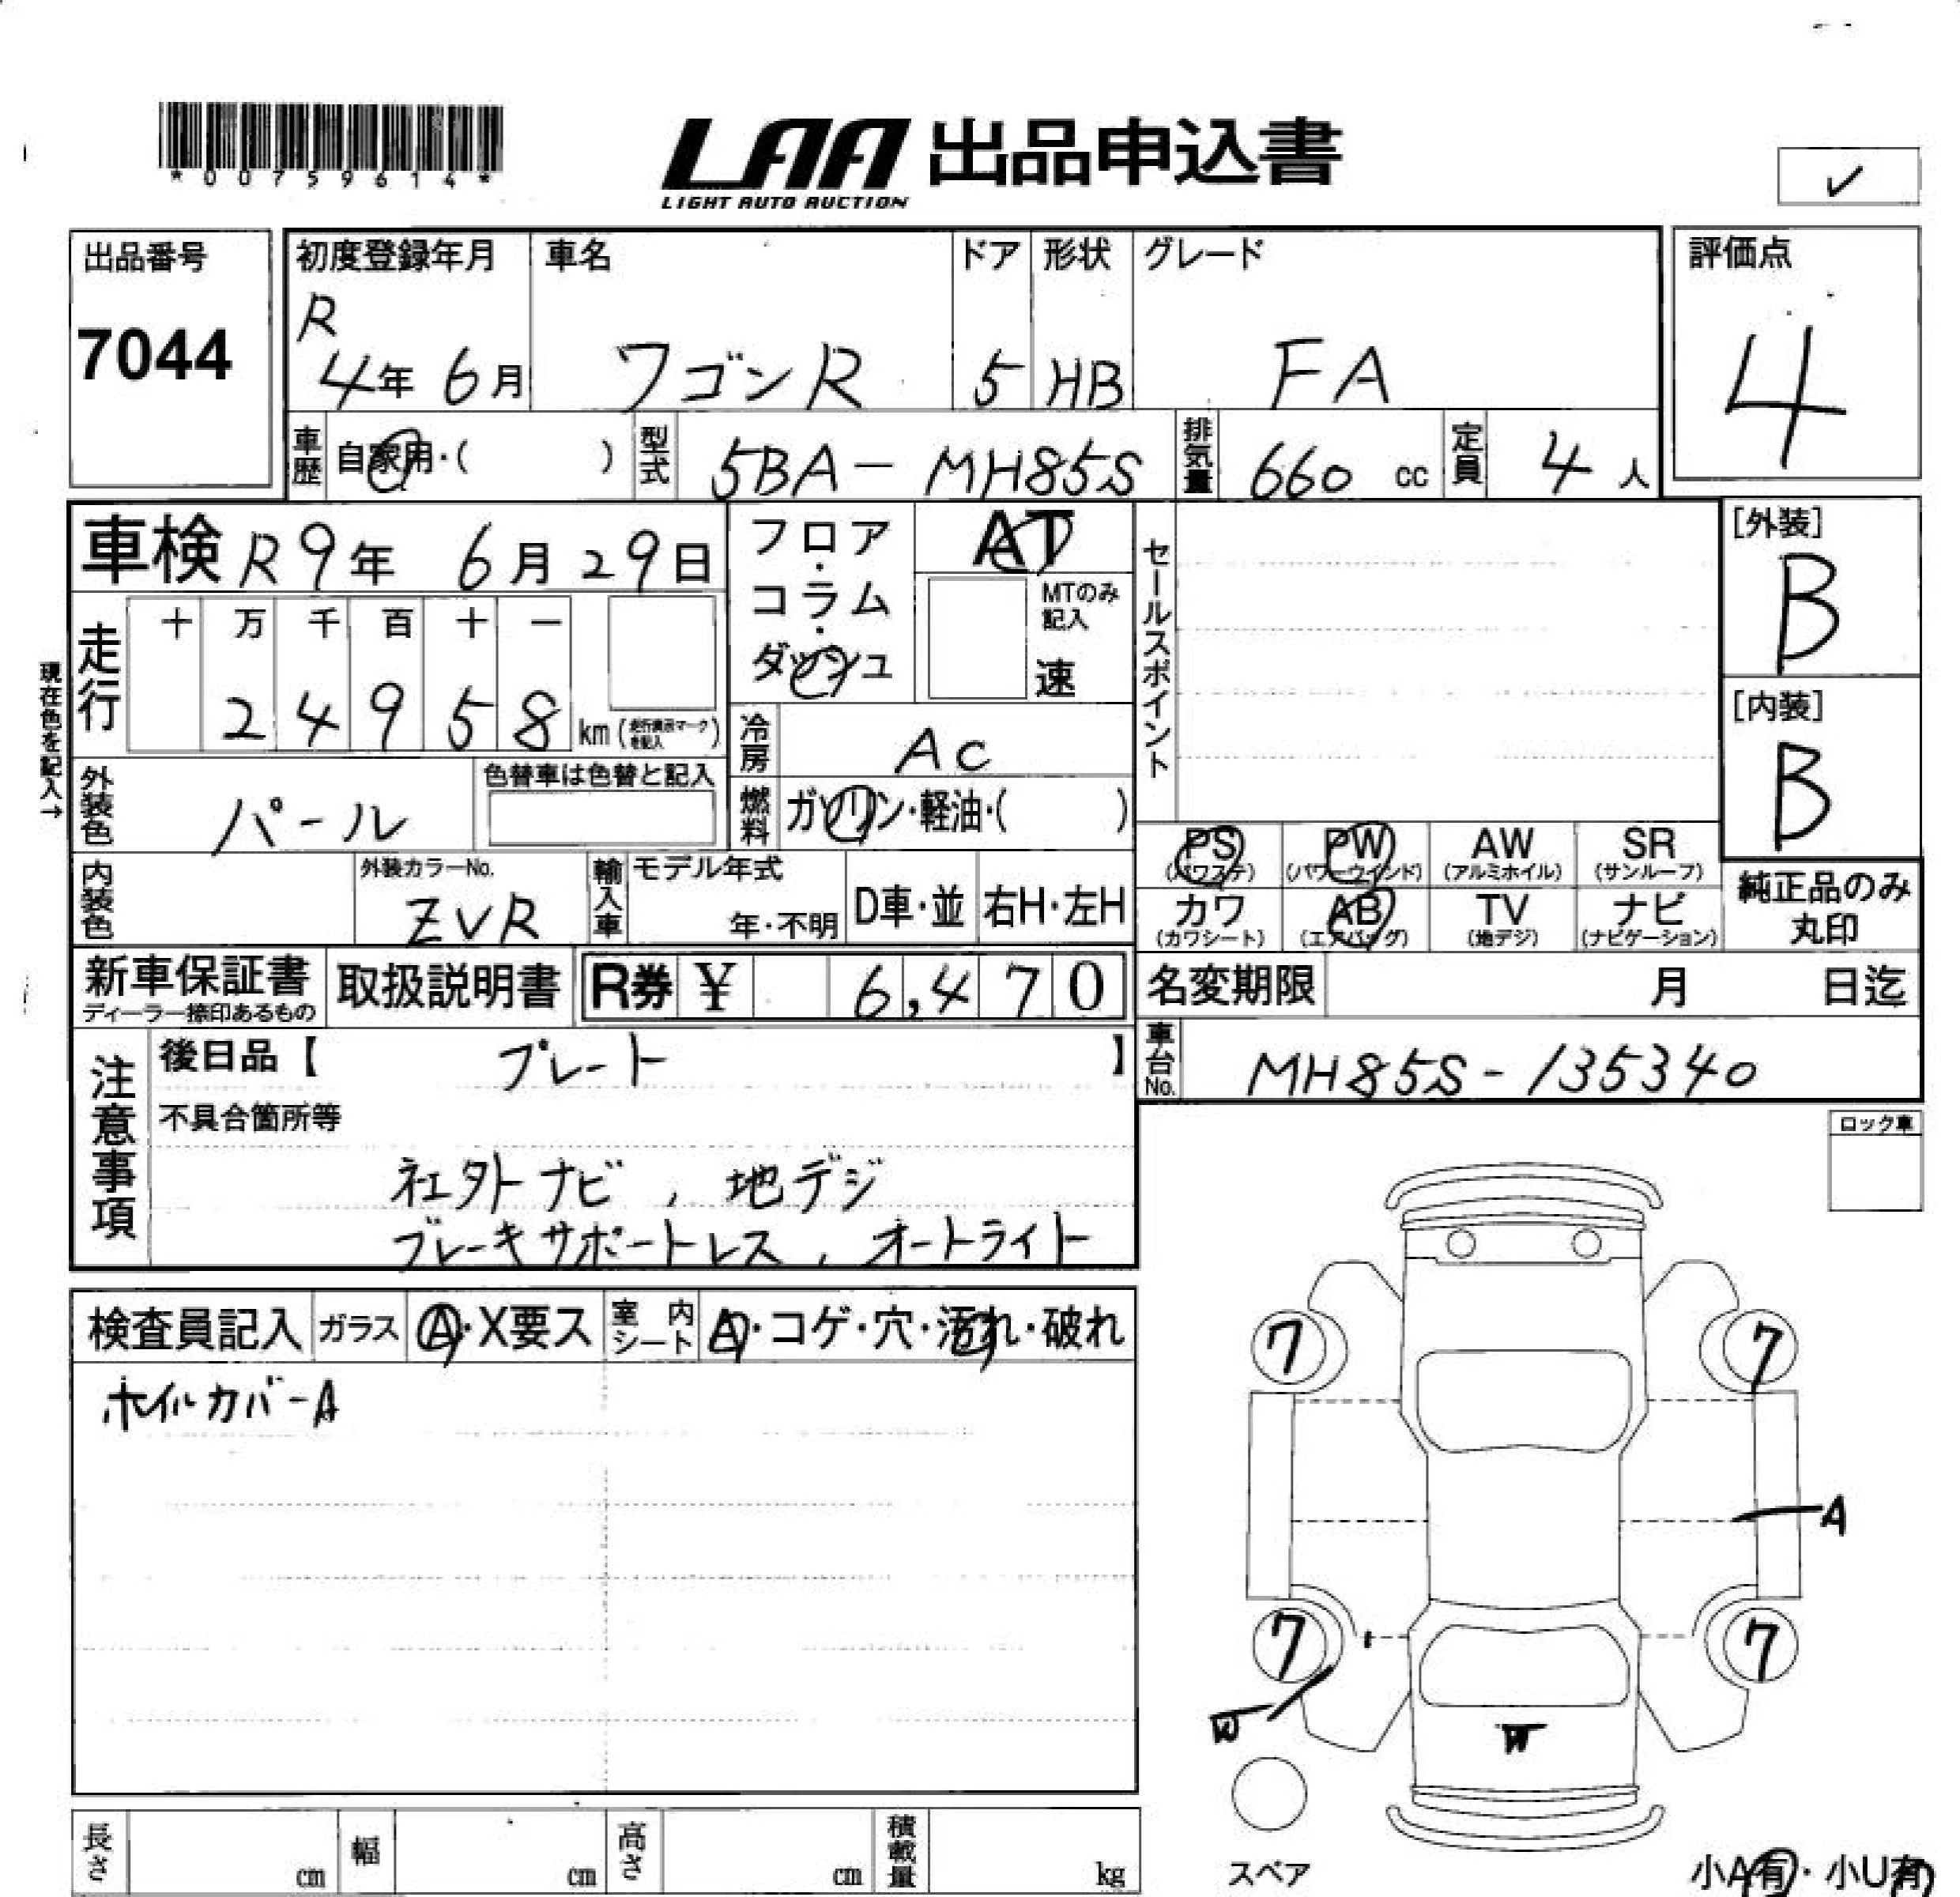 *00759614*
LAA 出品申込書
LIGHT AUTO AUCTION
✓
出品番号
7044
初度登録年月
R
4年 6月
車名
ワゴンR
ドア
5
形状
HB
グレード
FA
評価点
4
車歴
自家用・( )
型式
5BA-MH85S
排気量
660 cc
定員
4 人
車検 R9年 6月29日
現在色を記入→
走行
十 万 千 百 十 一
2 4 9 5 8 km
外装色
パール
色替車は色替と記入
内装色
外装カラーNo.
ZVR
フロア・コラム・ダッシュ
AT
MTのみ記入
速
冷房
AC
燃料
ガソリン・軽油・( )
輸入車
モデル年式
年・不明
D車・並
右H・左H
セールスポイント
[外装]
B
[内装]
B
PS (パワステ)
PW (パワーウインド)
AW (アルミホイル)
SR (サンルーフ)
カワ (カワシート)
AB (エアバッグ)
TV (地デジ)
ナビ (ナビゲーション)
純正品のみ
丸印
新車保証書
ディーラー捺印あるもの
取扱説明書
R券 ¥ 6,470
名変期限 月 日迄
車台No.
MH85S-135340
注意事項
後日品【 プレート 】
不具合箇所等
社外ナビ、地デジ
ブレーキサポートレス、オートライト
ロック車
検査員記入
ガラス
A・X要ス
室内シート
A・コゲ・穴・汚れ・破れ
ホイルカバーA
7 7
A
7 7
W
W
スペア
長さ cm
幅 cm
高さ cm
積載量 kg
小A有・小U有